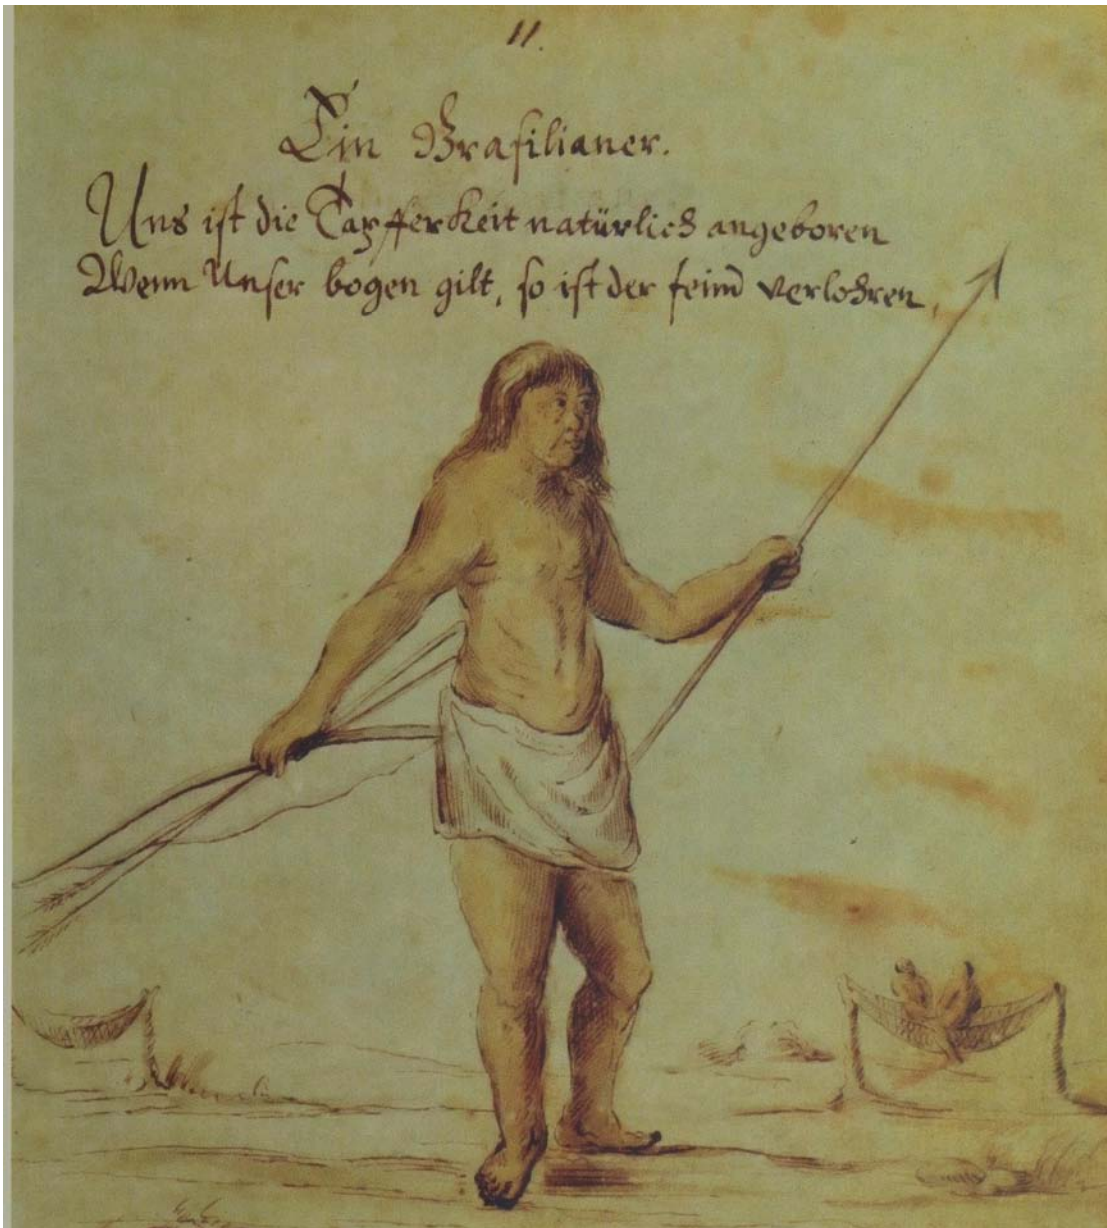 11.
Ein Brasilianer.
Uns ist die Tapfferkeit natürlich angeboren
Wenn Unser bogen gilt, so ist der feind verlohren,